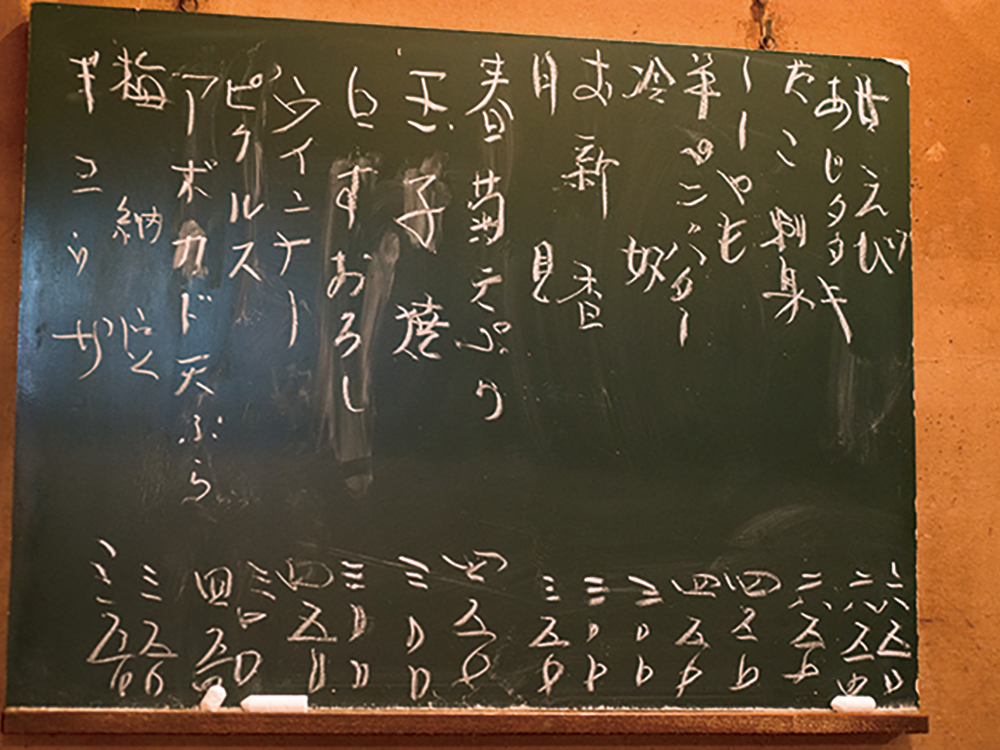 甘えび
あじタタキ
たこ刺身
ししゃも 四五〇
バター 四五〇
冷奴 三〇〇
お新香 三〇〇
月見 三五〇
春菊天ぷら 四五〇
玉子焼 三〇〇
白すおろし 三〇〇
ウインナー 四五〇
ピクルス 三〇〇
アボカド天ぷら 四五〇
梅納豆 三五〇
ギョウザ 三五〇